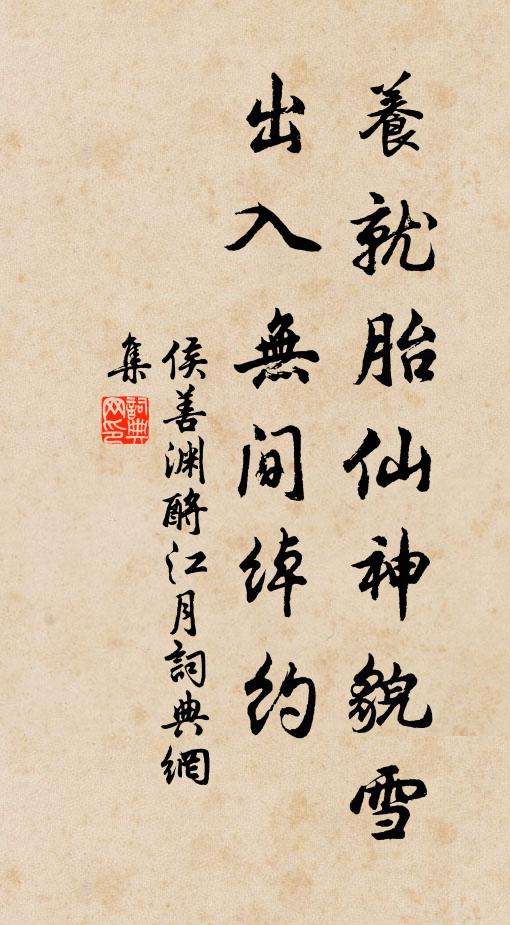 養就胎仙神貌雪
出入無間綽約
侯善渊酹江月詞典網
集
詞典
网印